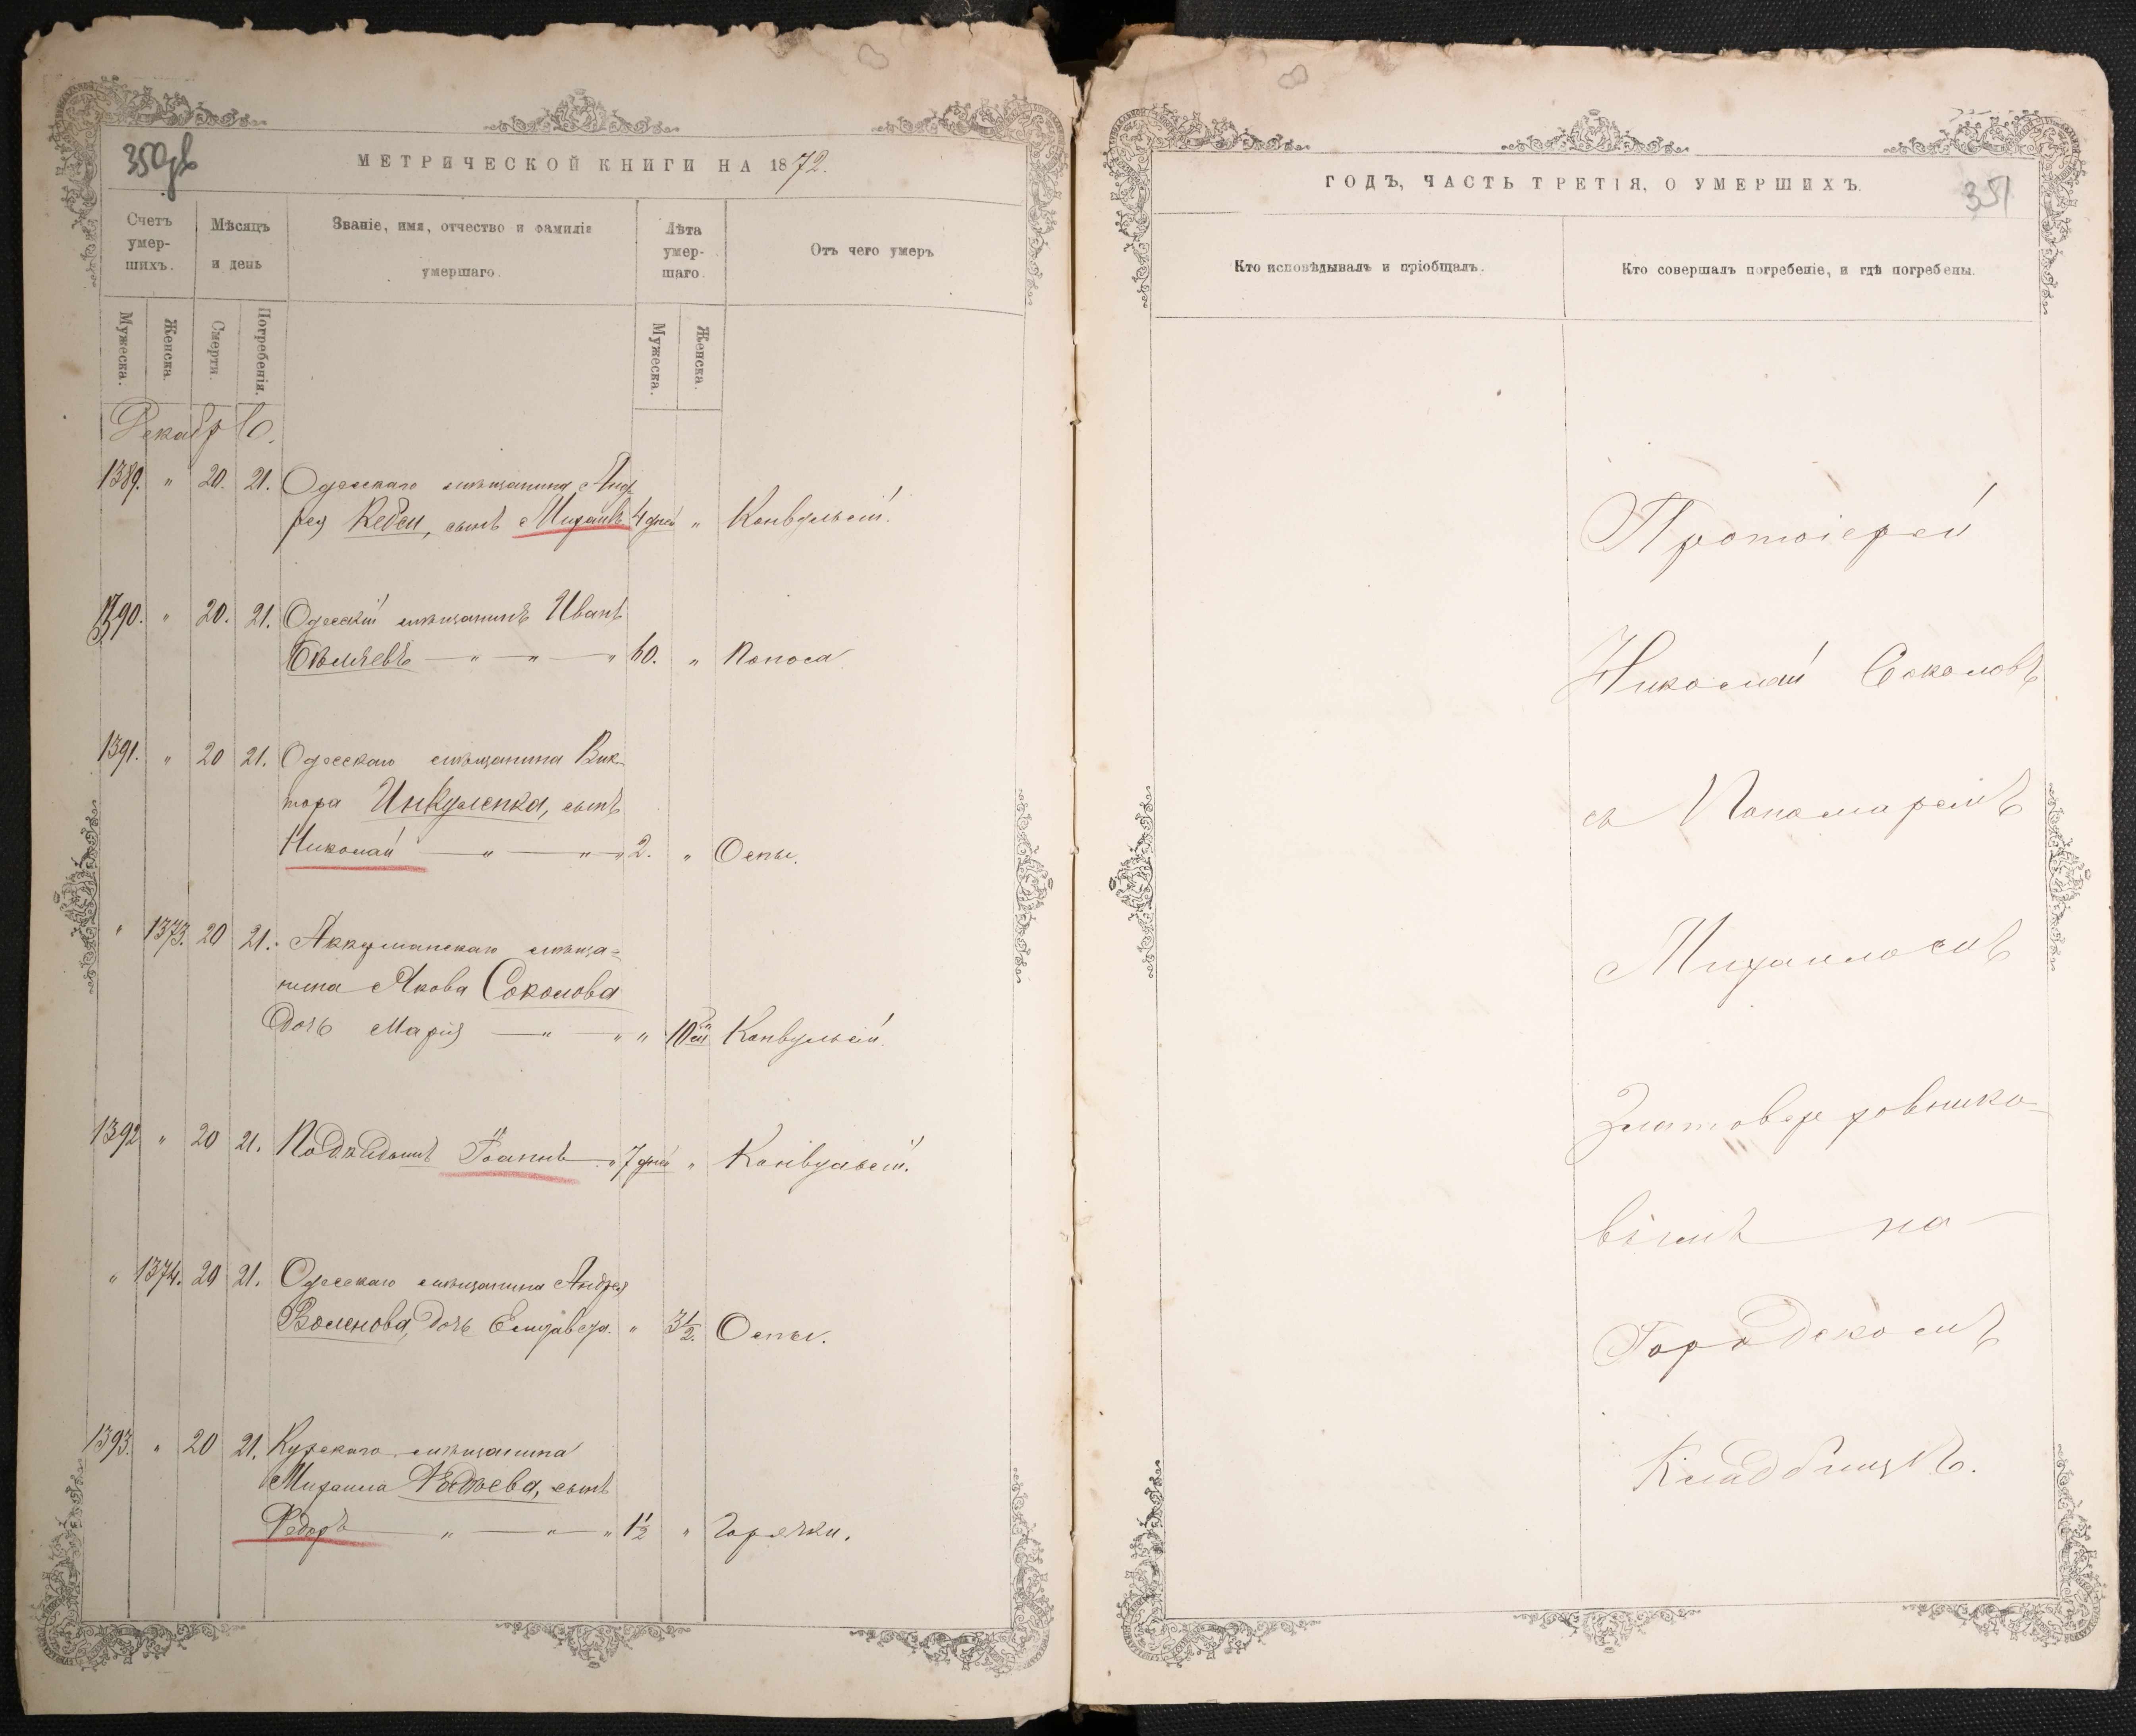 350об
МЕТРИЧЕСКОЙ КНИГИ НА 1872.
Счетъ умер-шихъ.
Мѣсяцъ и день
Званіе, имя, отчество и фамилія умершаго.
Лѣта умер-шаго.
Отъ чего умеръ
Мужеска.
Женска.
Смерти.
Погребенія.
Мужеска.
Женска.
Декабрь.
1389. " 20. 21. Одесскаго мѣщанина Анд-
рея сынъ Михаилъ 4 дней " Конвульсій.
1390. " 20. 21. Одесскій мѣщанинъ Иванъ
Бѣляевъ — " — " — " 60. " Поноса.
1391. " 20 21. Одесскаго мѣщанина Вик-
тора Инкуленка, сынъ
Николай — " — " — " 2. " Оспы.
" 1373. 20 21. Аккерманскаго мѣща-
нина Якова Соколова
дочь Марія — " — " " Конвульсій.
1392 " 20 21. Подкидышъ Іоаннъ " 7 дней " Конвульсій.
" 1374. 20 21. Одесскаго мѣщанина Андрея
дочь Елизавета. " 3½. Оспы.
1393. " 20 21. Курскаго мѣщанина
Михаила сынъ
Федоръ — " — " — " 1½ " Горячки.
ГОДЪ, ЧАСТЬ ТРЕТІЯ, О УМЕРШИХЪ.
351
Кто исповѣдывалъ и пріобщалъ.
Кто совершалъ погребеніе, и гдѣ погребены.
Протоіерей
Николай Соколовъ
съ Пономаремъ
Михаиломъ
Златоверховнико-
вымъ на
Городскомъ
Кладбищѣ.